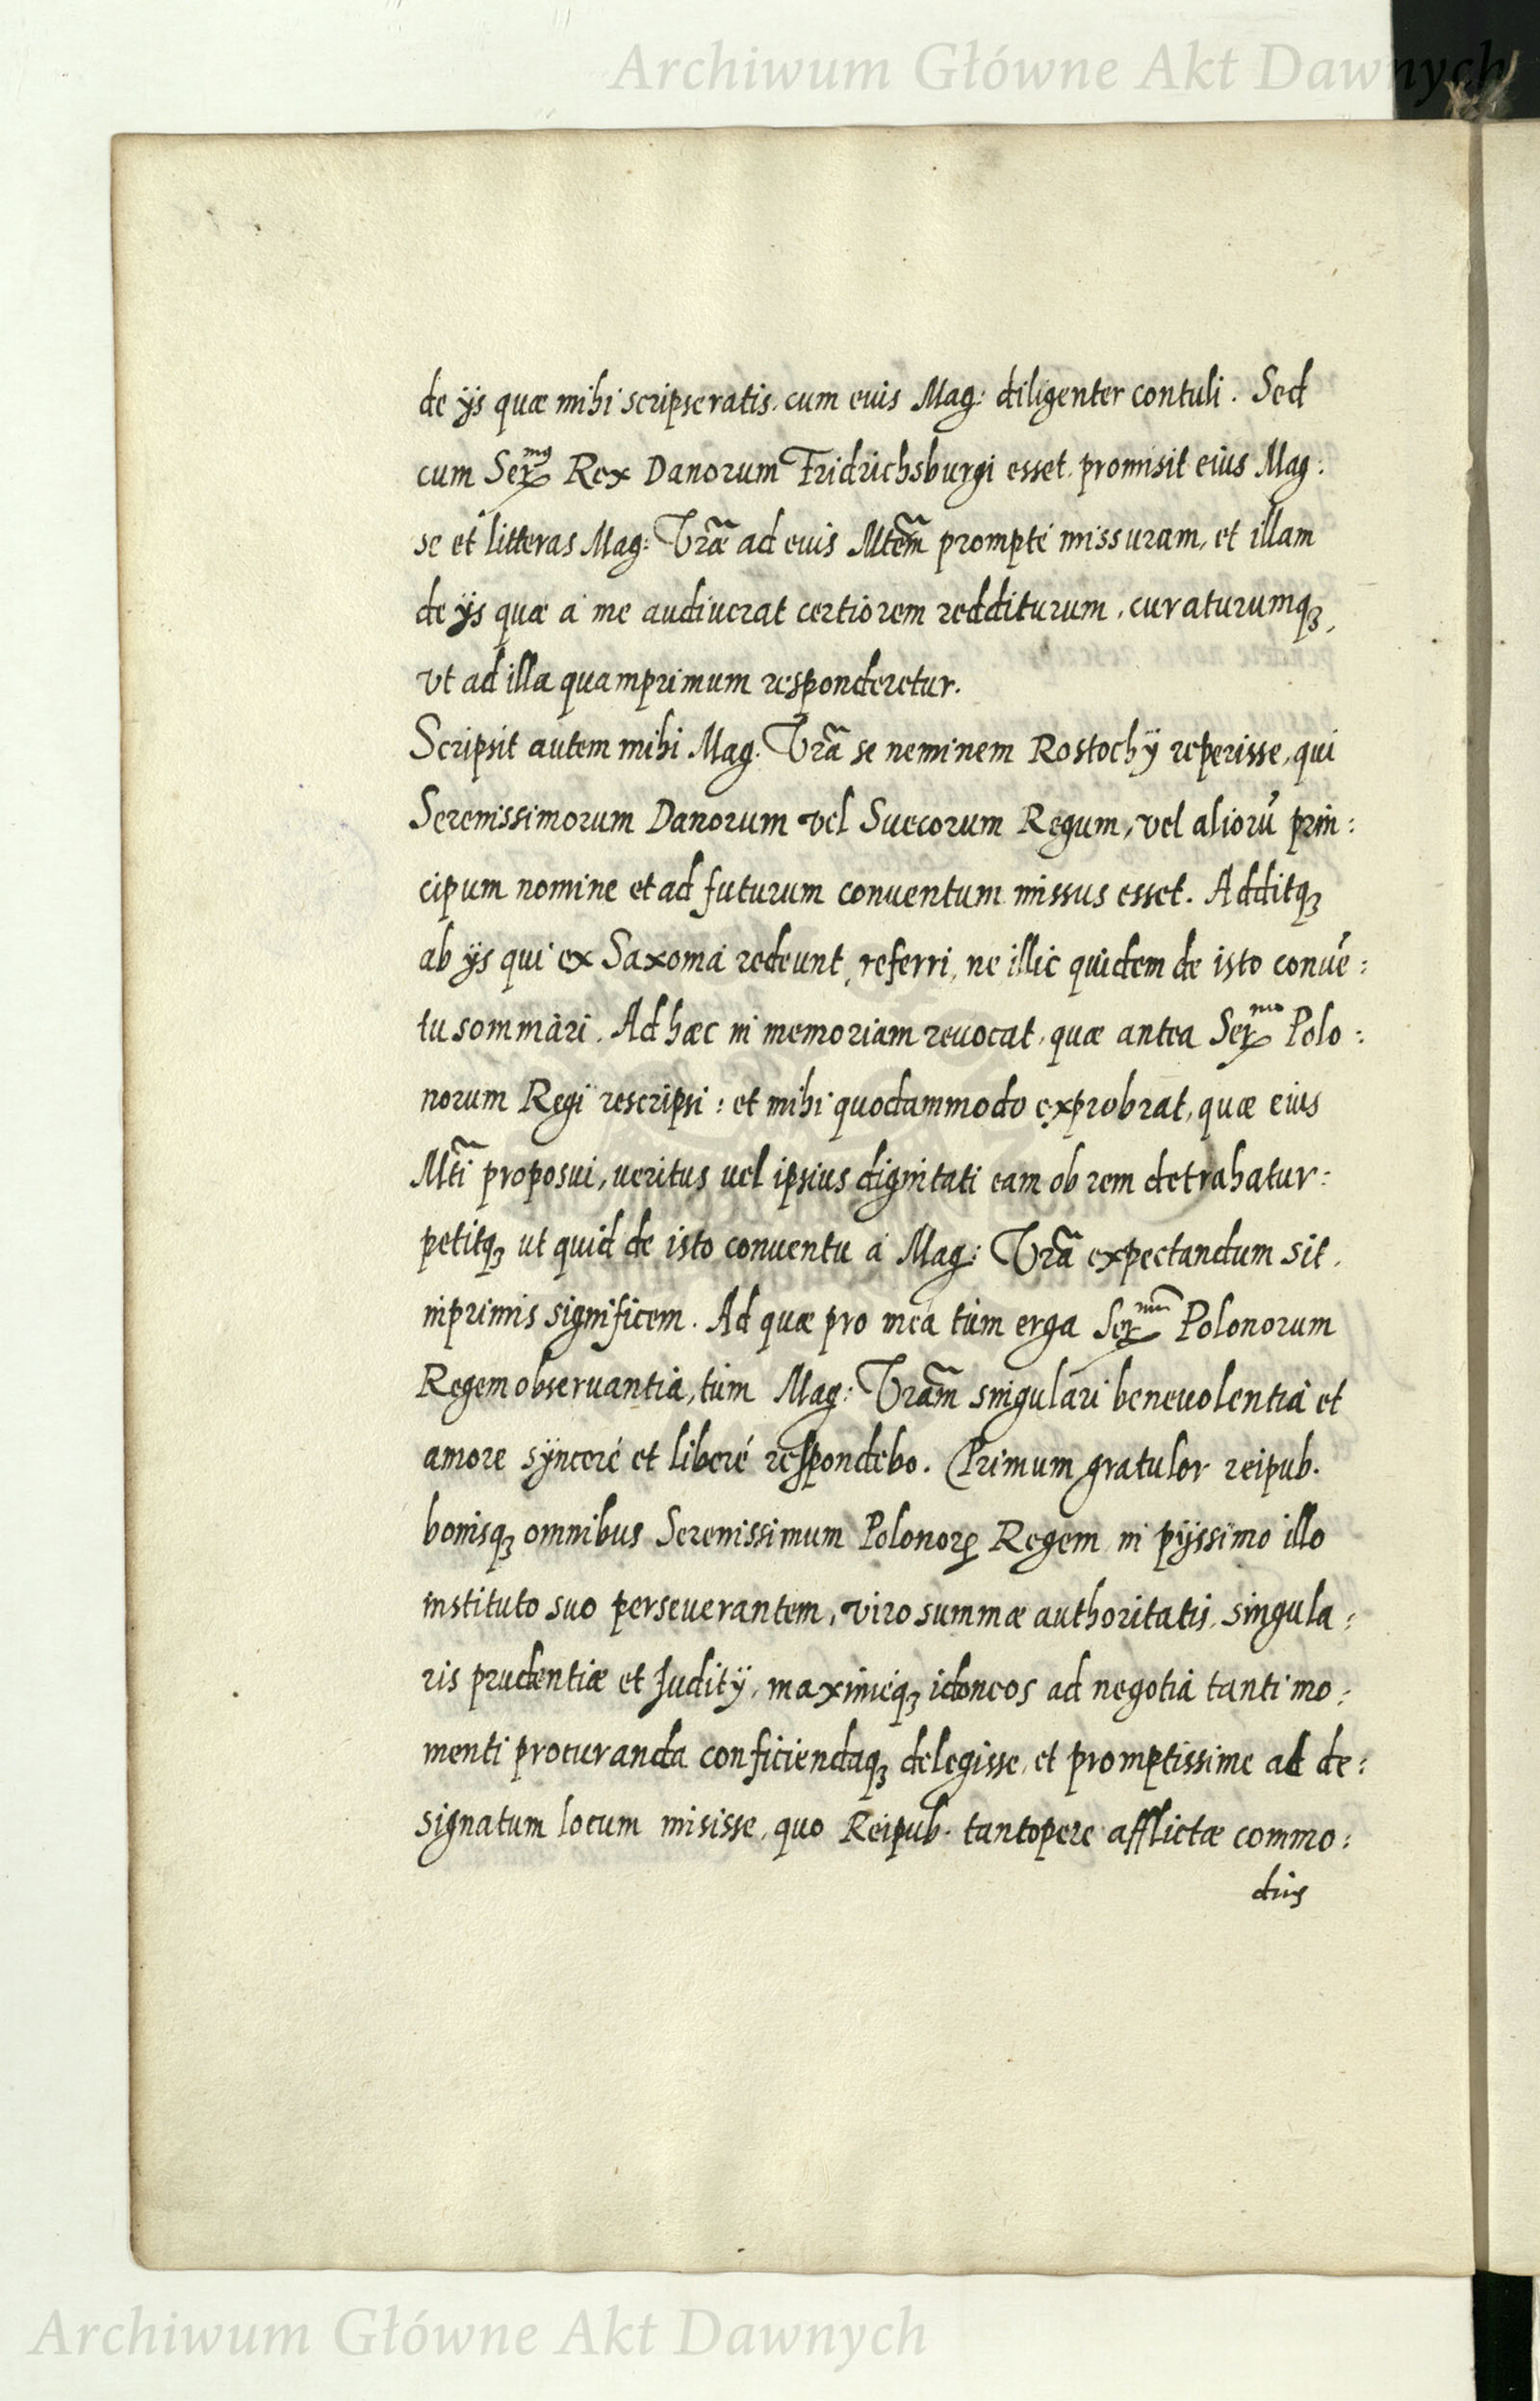 Archiwum Główne Akt Dawnych
de ijs quæ mihi scripseratis, cum euis Mag: diligenter contuli. Sed
cum Ser.mus Rex Danorum Fridrichsburgi esset, promisit eius Mag:
se et litteras Mag: Vræ̃ ad euis Mtem̃ prompté missuram, et illam
de ijs quæ á me audiuerat certiorem redditurum, curaturumq3,
vt ad illa quamprimum responderetur.
Scripsit autem mihi Mag. Vrã se neminem Rostochÿ reperisse, qui
Serenissimorum Danorum vel Suecorum Regum, vel aliorũ prin:
cipum nomine et ad futurum conuentum missus esset. Additq3
ab ijs qui ex Saxoniá redeunt, referri, ne illic quidem de isto conuẽ:
tu somniari. Ad hæc in memoriam reuocat, quæ antea Ser.mo Polo:
norum Regi rescripsi: et mihi quodammodo exprobrat, quæ eius
Mti̴ proposui, ueritus uel ipsius dignitati eam ob rem detrahatur:
petitq3 ut quid de isto conuentu á Mag: Vrã expectandum sit,
inprimis significem. Ad quæ pro meá tùm erga Ser.mũ Polonorum
Regem obseruantiá, tùm Mag: Vram̃ singulari beneuolentiá et
amore sÿnceré et liberé respondebo. Primum gratulor reipub.
bonisq3 omnibus Serenissimum Polonorꝝ Regem in pijssimo illo
instituto suo perseuerantem, viro summæ authoritatis, singula:
ris prudentiæ et Juditÿ, maximéq3 idoneos ad negotia tanti mo:
menti procuranda conficiendaq3 delegisse, et promptissime ad de:
signatum locum misisse, quo Reipub. tantopere afflictæ commo:
dius
Archiwum Główne Akt Dawnych